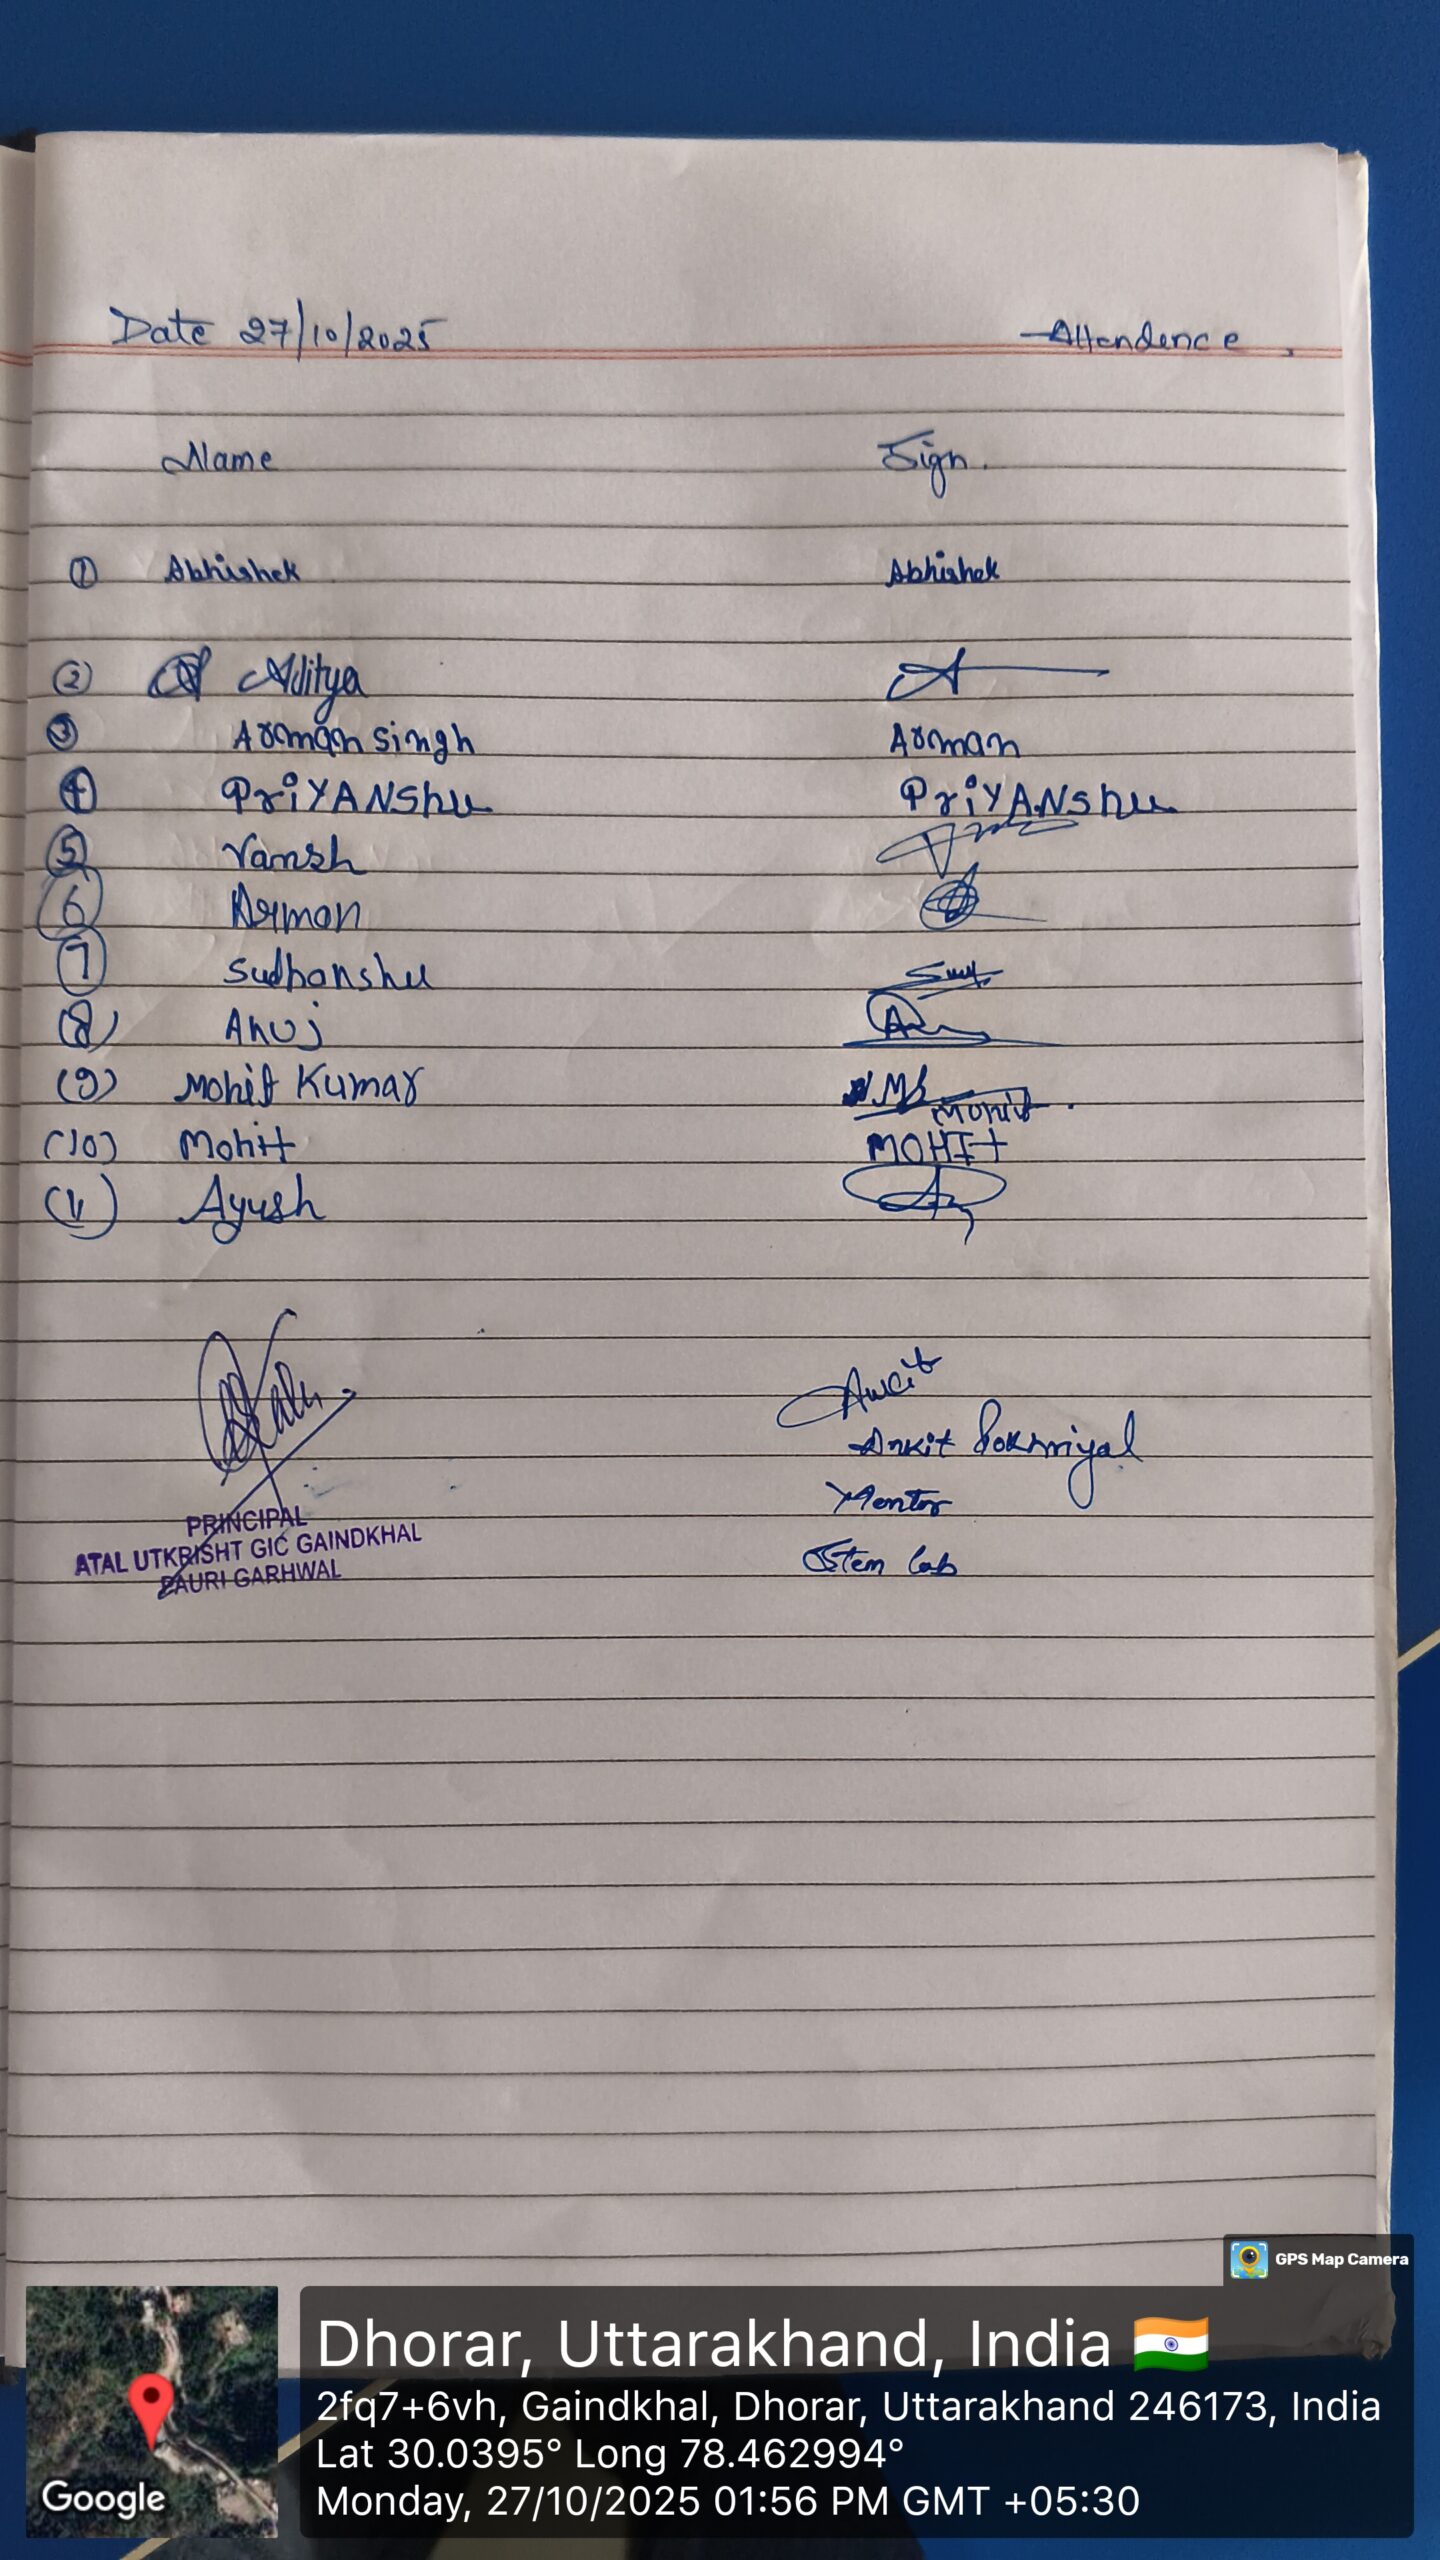 Date 27/10/2025 Attendence
Name Sign.
1 Abhishek Abhishek
2 Aditya A
3 Arman Singh Arman
4 PriYANShu PriYANShu
5 Vansh
6 Arman
7 Sudhanshu
(8) Anuj
(9) Mohit Kumar Mohit
(10) Mohit MOHIt
(11) Ayush
Ankit
Ankit Pokhriyal
Mentor
Stem Lab
PRINCIPAL
ATAL UTKRISHT GIC GAINDKHAL
PAURI GARHWAL
GPS Map Camera
Dhorar, Uttarakhand, India
2fq7+6vh, Gaindkhal, Dhorar, Uttarakhand 246173, India
Lat 30.0395° Long 78.462994°
Monday, 27/10/2025 01:56 PM GMT +05:30
Google